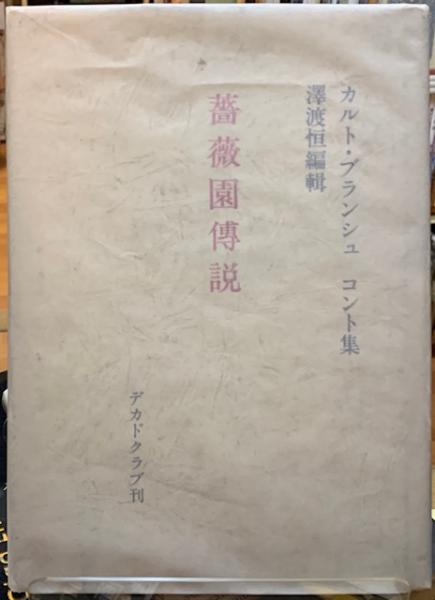 カルト・ブランシュ　コント集
澤渡恒編輯
薔薇園傳説
デカドクラブ刊